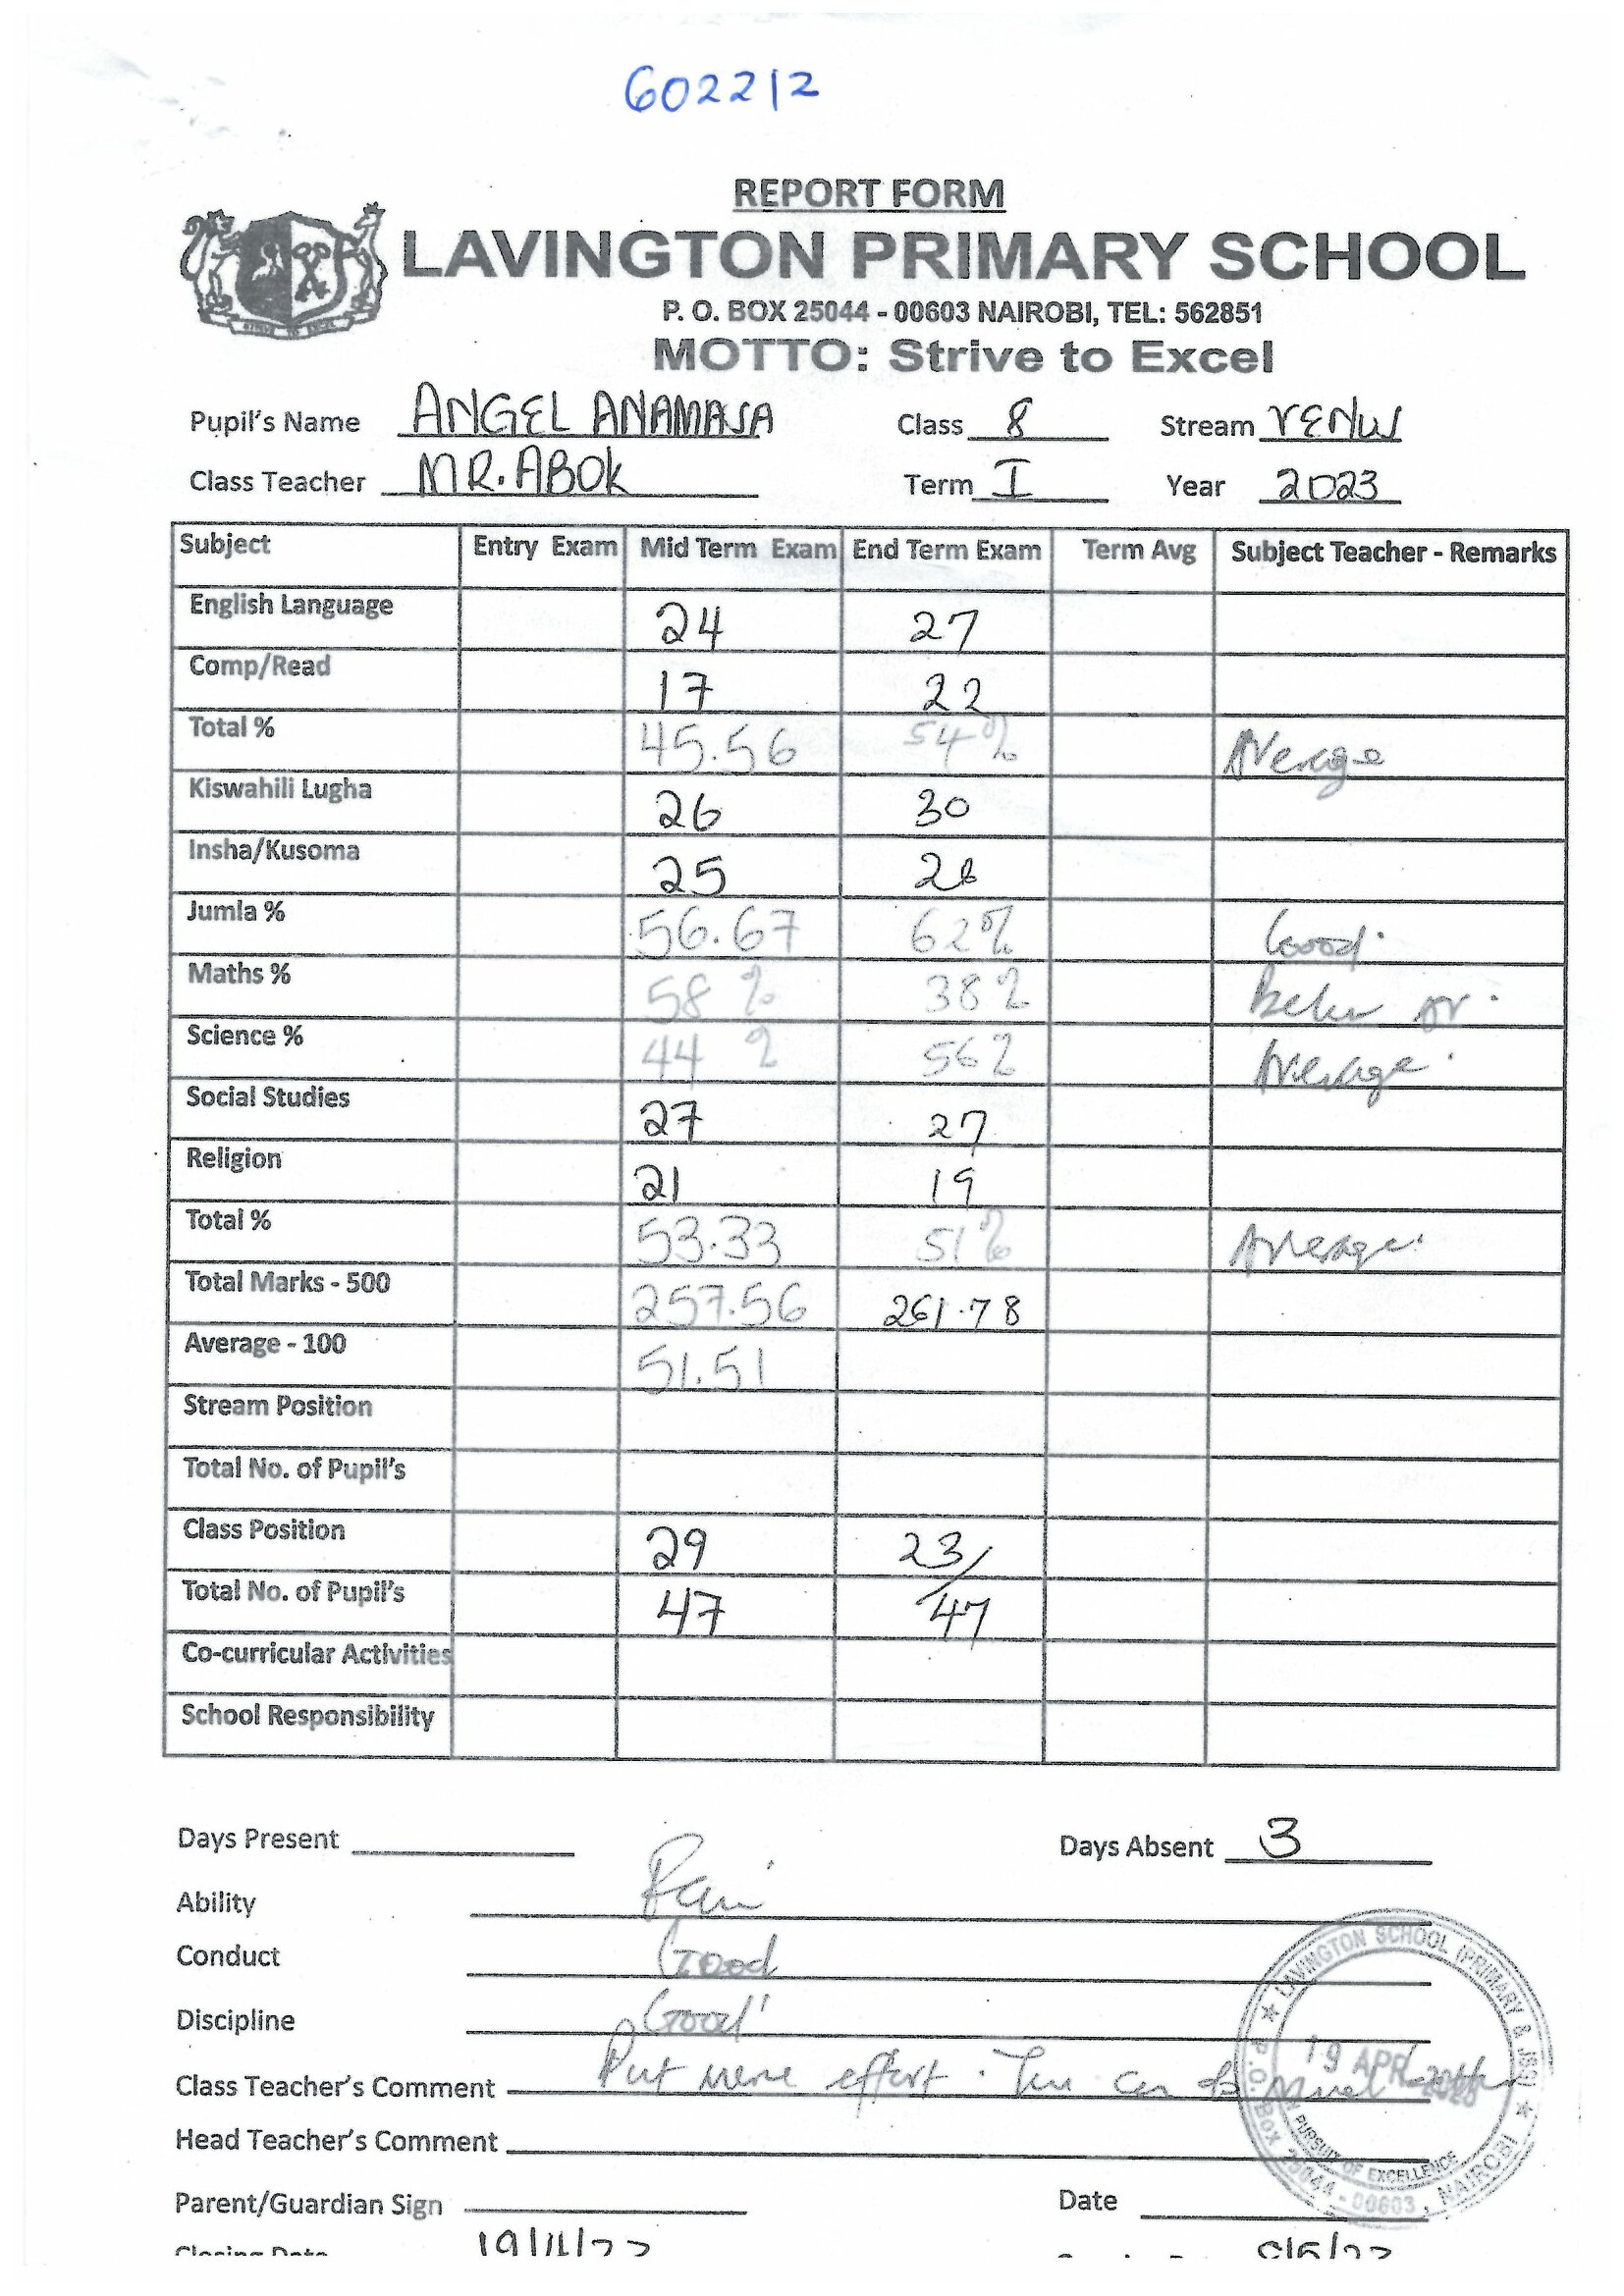 602212
REPORT FORM
LAVINGTON PRIMARY SCHOOL
P. O. BOX 25044 - 00603 NAIROBI, TEL: 562851
MOTTO: Strive to Excel
Pupil's Name ANGEL ANAMASA Class 8 Stream VENUS
Class Teacher MR. ABOK Term I Year 2023
Subject Entry Exam Mid Term Exam End Term Exam Term Avg Subject Teacher - Remarks
English Language 24 27
Comp/Read 17 22
Total % 45.56 54% Average
Kiswahili Lugha 26 30
Insha/Kusoma 25 26
Jumla % 56.67 62% Good.
Maths % 58 % 38% Below Av.
Science % 44 % 56% Average.
Social Studies 27 27
Religion 21 19
Total % 53.33 51% Average.
Total Marks - 500 257.56 261.78
Average - 100 51.51
Stream Position
Total No. of Pupil's
Class Position 29 23/
Total No. of Pupil's 47 47
Co-curricular Activities
School Responsibility
Days Present Days Absent 3
Ability Fair
Conduct Good
Discipline Good
Class Teacher's Comment Put more effort. You can do much better
LAVINGTON SCHOOL (PRIMARY & JSS)
19 APR
IN PURSUIT OF EXCELLENCE
P.O. Box 25044 - 00603, NAIROBI
Head Teacher's Comment
Parent/Guardian Sign Date
Closing Date 19/4/23